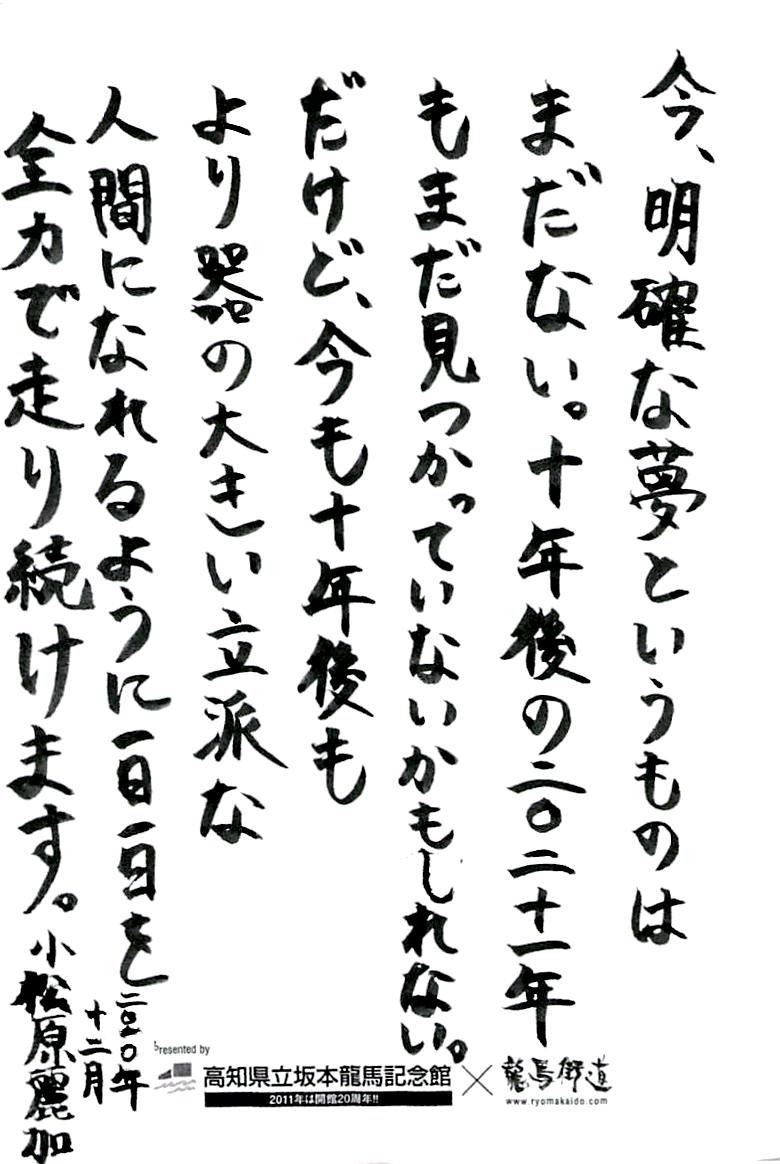 今、明確な夢というものは
まだない。十年後の二〇二十一年
もまだ見つかっていないかもしれない。
だけど、今も十年後も
より器の大きい立派な
人間になれるように一日一日を
全力で走り続けます。
二〇一〇年
十二月
小松原麗加
Presented by
高知県立坂本龍馬記念館
2011年は開館20周年!!
×
龍馬街道
www.ryomakaido.com